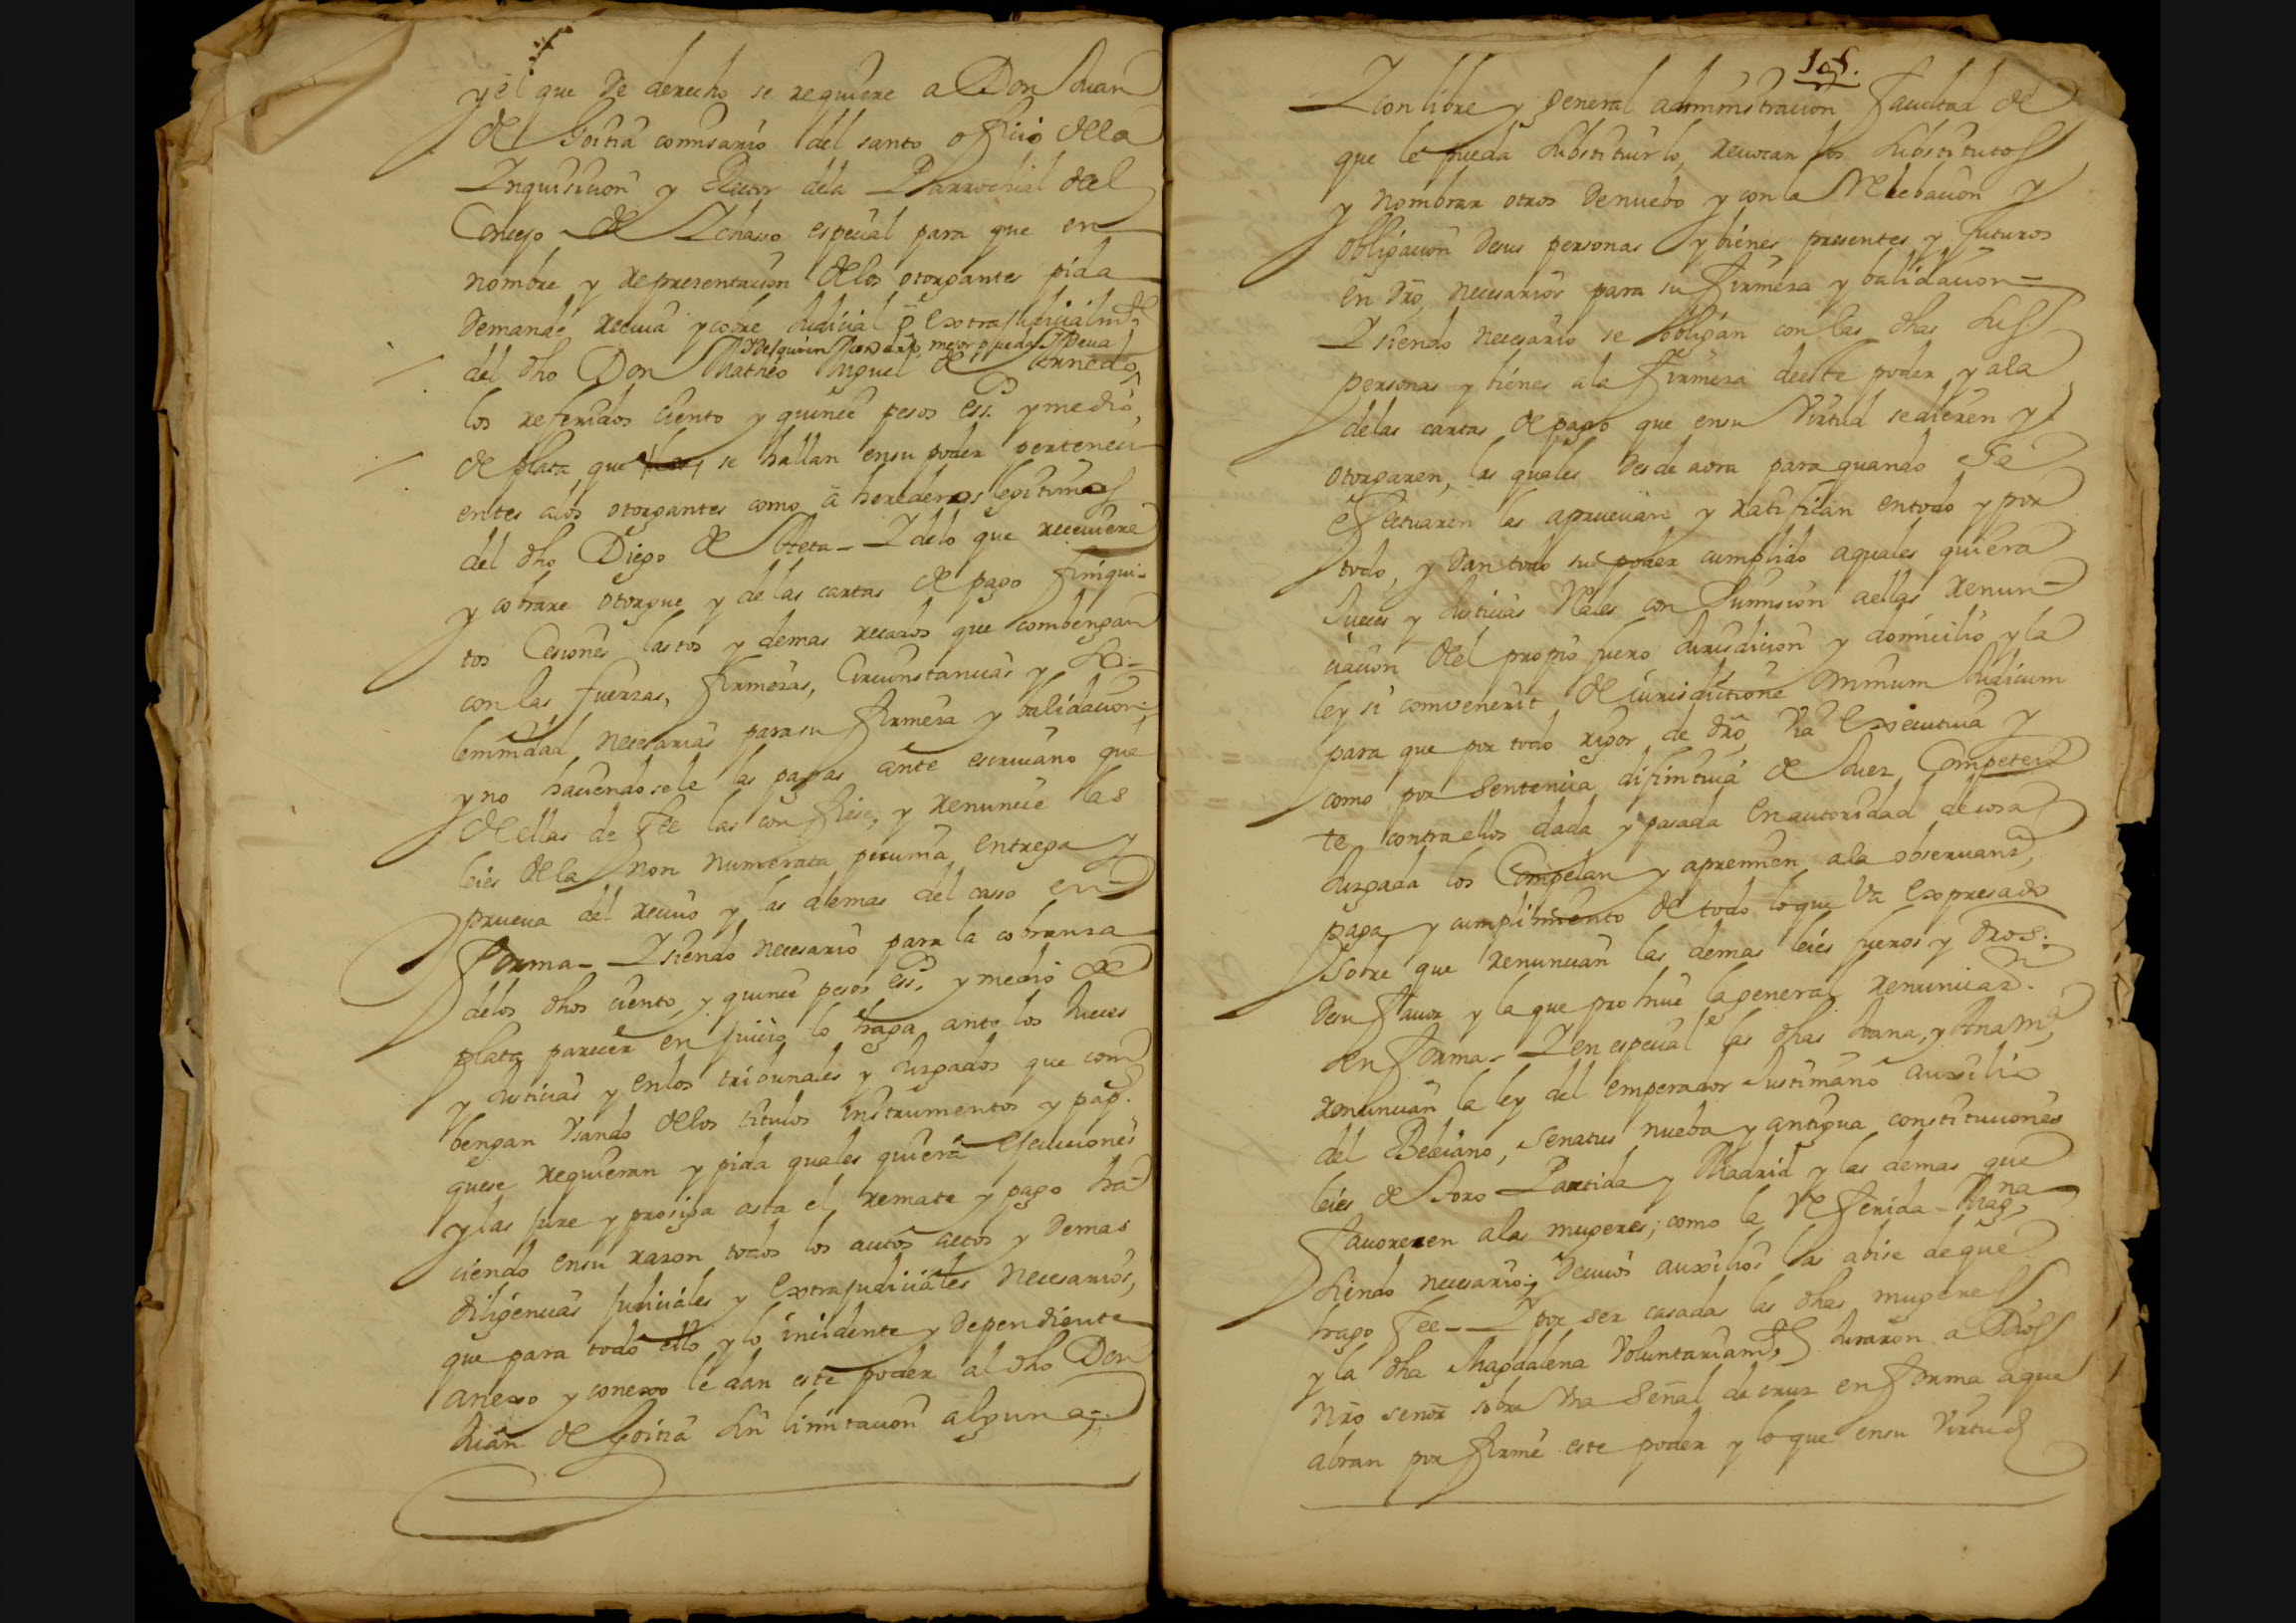 y el que de derecho se requiere a Don Juan
de Goitia comisario del santo oficio de la
Inquisicion y Rector dela Parrochial del
Concejo de Ichasso especial para que en
nombre y representacion delos otorgantes pida
demande, reciva y cobre Judicial o extrajudicialmte
y de quien con dro mejor pueda y deva
del dho Don Matheo Miguel de Arnedo,
los referidos ciento y quince pesos ess. y medio,
de plata, que se hallan ensu poder perteneci
entes alos otorgantes como a herederos legitimos
del dho Diego de Ateta - I delo que receviere
y cobrare otorgue y de las cartas de pago finiqui-
tos Cesiones lastos y demas recados que combengan
con las fuerzas, firmezas, Circunstancias y So-
lemnidad necesarias para su firmeza y validacion;
y no haciendosele las pagas ante escrivano que
de ellas de Fee las confiese, y renuncie las
leies de la non numerata pecunia entrega y
prueva del recivo y las demas del casso en
forma - I siendo necesario para la cobranza
delos dhos ciento, y quince pesos ess. y medio de
plata parecer en juicio lo haga ante los Jueces
y Justicias y enlos tribunales y Juzgados que com
bengan Usando delos titulos instrumentos y pap.
quese requieran y pida quales quiera ejecuciones
y las jure y prosiga asta el remate y pago ha
ciendo ensu razon todos los autos actos y demas
diligencias judiciales y extrajudiciales necesarios,
que para todo ello y lo incidente y dependiente
anexo y conexo le dan este poder al dho Don
Juan de Goitia sin limitacion alguna;
105.
I con libre y general administracion facultad de
que le pueda substituir lo, revocar los substitutos
y nombrar otros denuebo y con la Relebacion y
obligacion desus personas y bienes presentes y futuros
en dro necesarios para su firmeza y balidacion =
I siendo necesario se obligan con las dhas sus
personas y bienes ala firmeza deeste poder y ala
delas cartas de pago que ensu Virtud sedieren y
otorgaren, las quales desde aora para quando se
efectuaren las aprueuan y ratifican entodo y por
todo, y dan todo su poder cumplido aquales quiera
Jueces y Justicias Rales con Sumision aellas renun
ciacion del propio fuero Jurisdicion y domicilio y la
ley si convenerit de iurisdictione omnium Judicum
para que por todo rigor de dro, Via Executiva y
como por sentencia difinitiva de Juez Competen
te contra ellos dada y pasada en autoridad de cosa
Juzgada los Compelan y apremien ala observanz,
paga y cumplimiento de todo lo que Va expresado
sobre que renuncian las demas leies fueros y dros.
desu favor y la que prohive la general renunciaz.
en forma - I en especial las dhas Juana, y Ana Ma,
renuncian la ley del emperador Justiniano auxilio
del Beleiano, senatus nueba y antigua constituciones
leies de toro Partida y Madrid y las demas que
favorezen ala mugeres; como la Referida Magna,
siendo necesario; y decuios auxilios las abise de que
hago Fee - I por ser casadas las dhas mugeres
y la dha Magdalena Voluntariamte, Juraron a Dios
nro senor sobre Una señal de cruz en forma aque
abran por firme este poder y lo que ensu Virtud